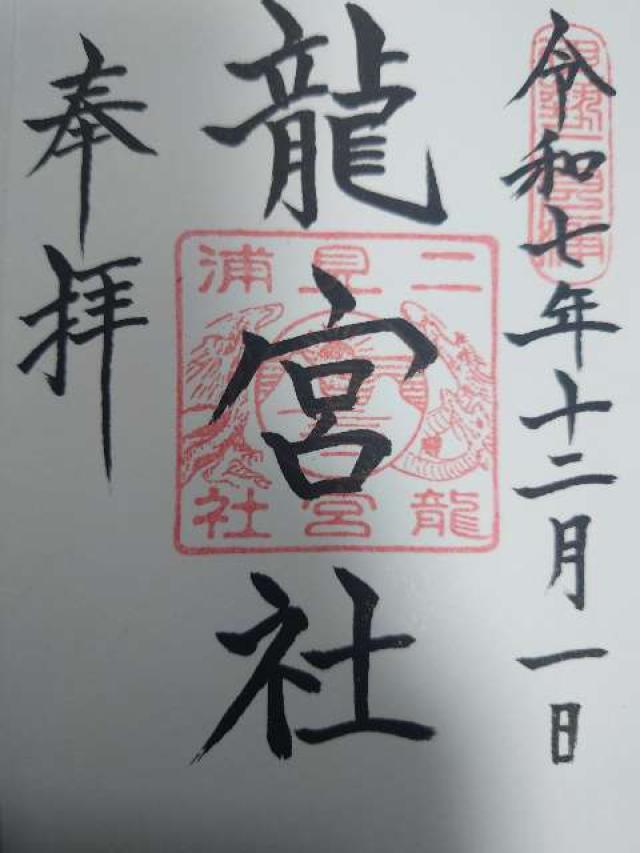 令和七年十二月一日
龍宮社
奉拝
二見浦
龍宮社